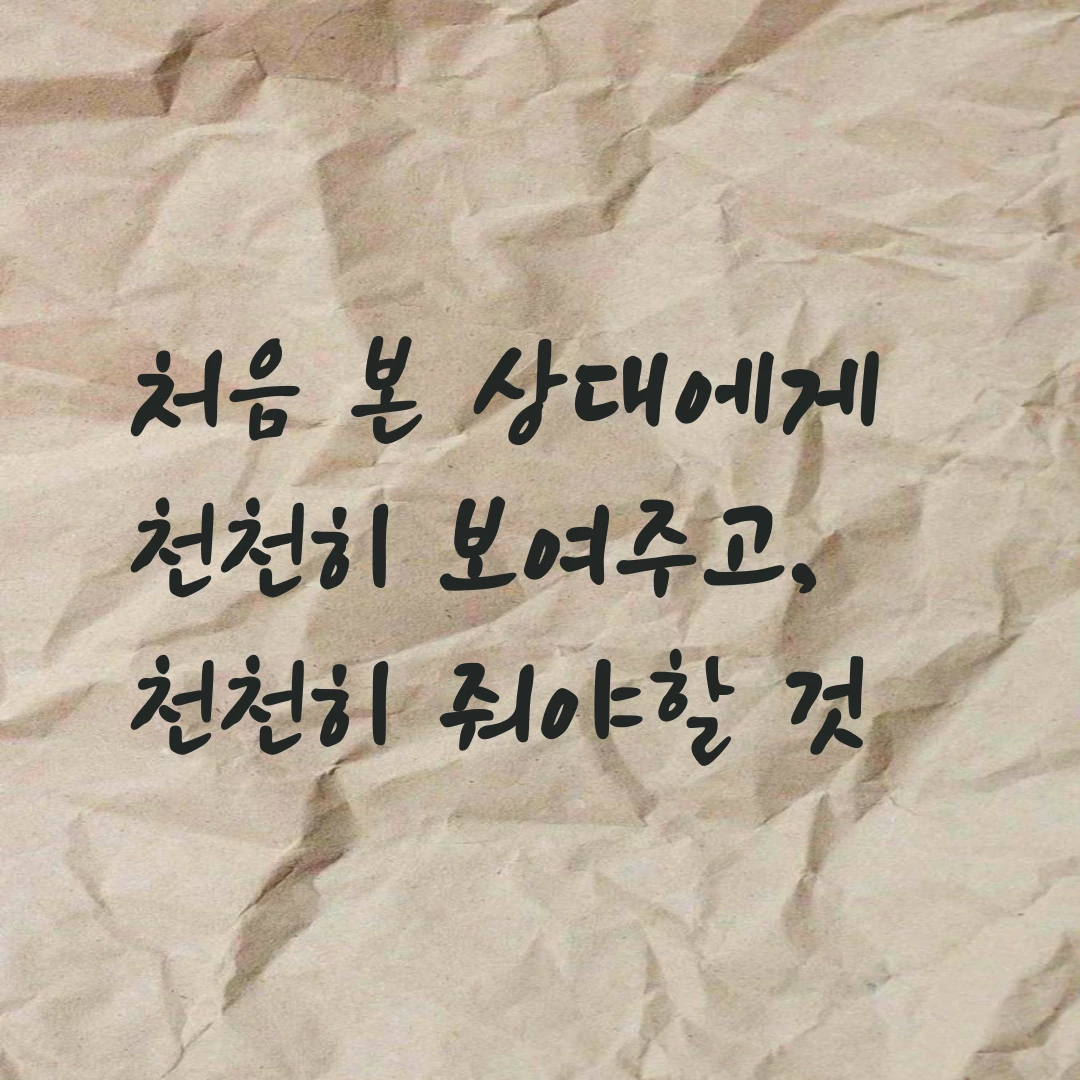 처음 본 상대에게
천천히 보여주고,
천천히 줘야할 것